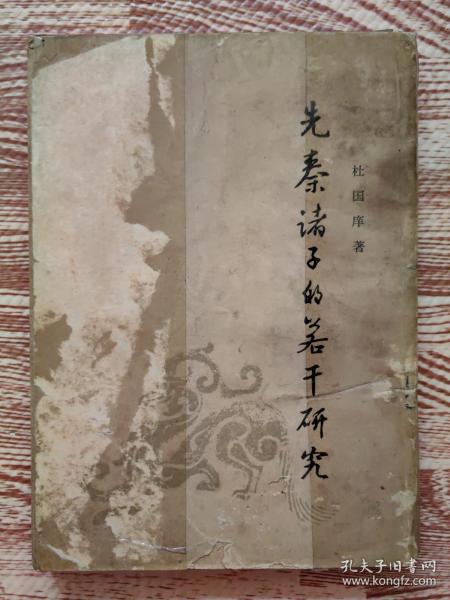 先秦诸子的若干研究
杜国庠著
孔夫子旧书网
www.kongfz.com